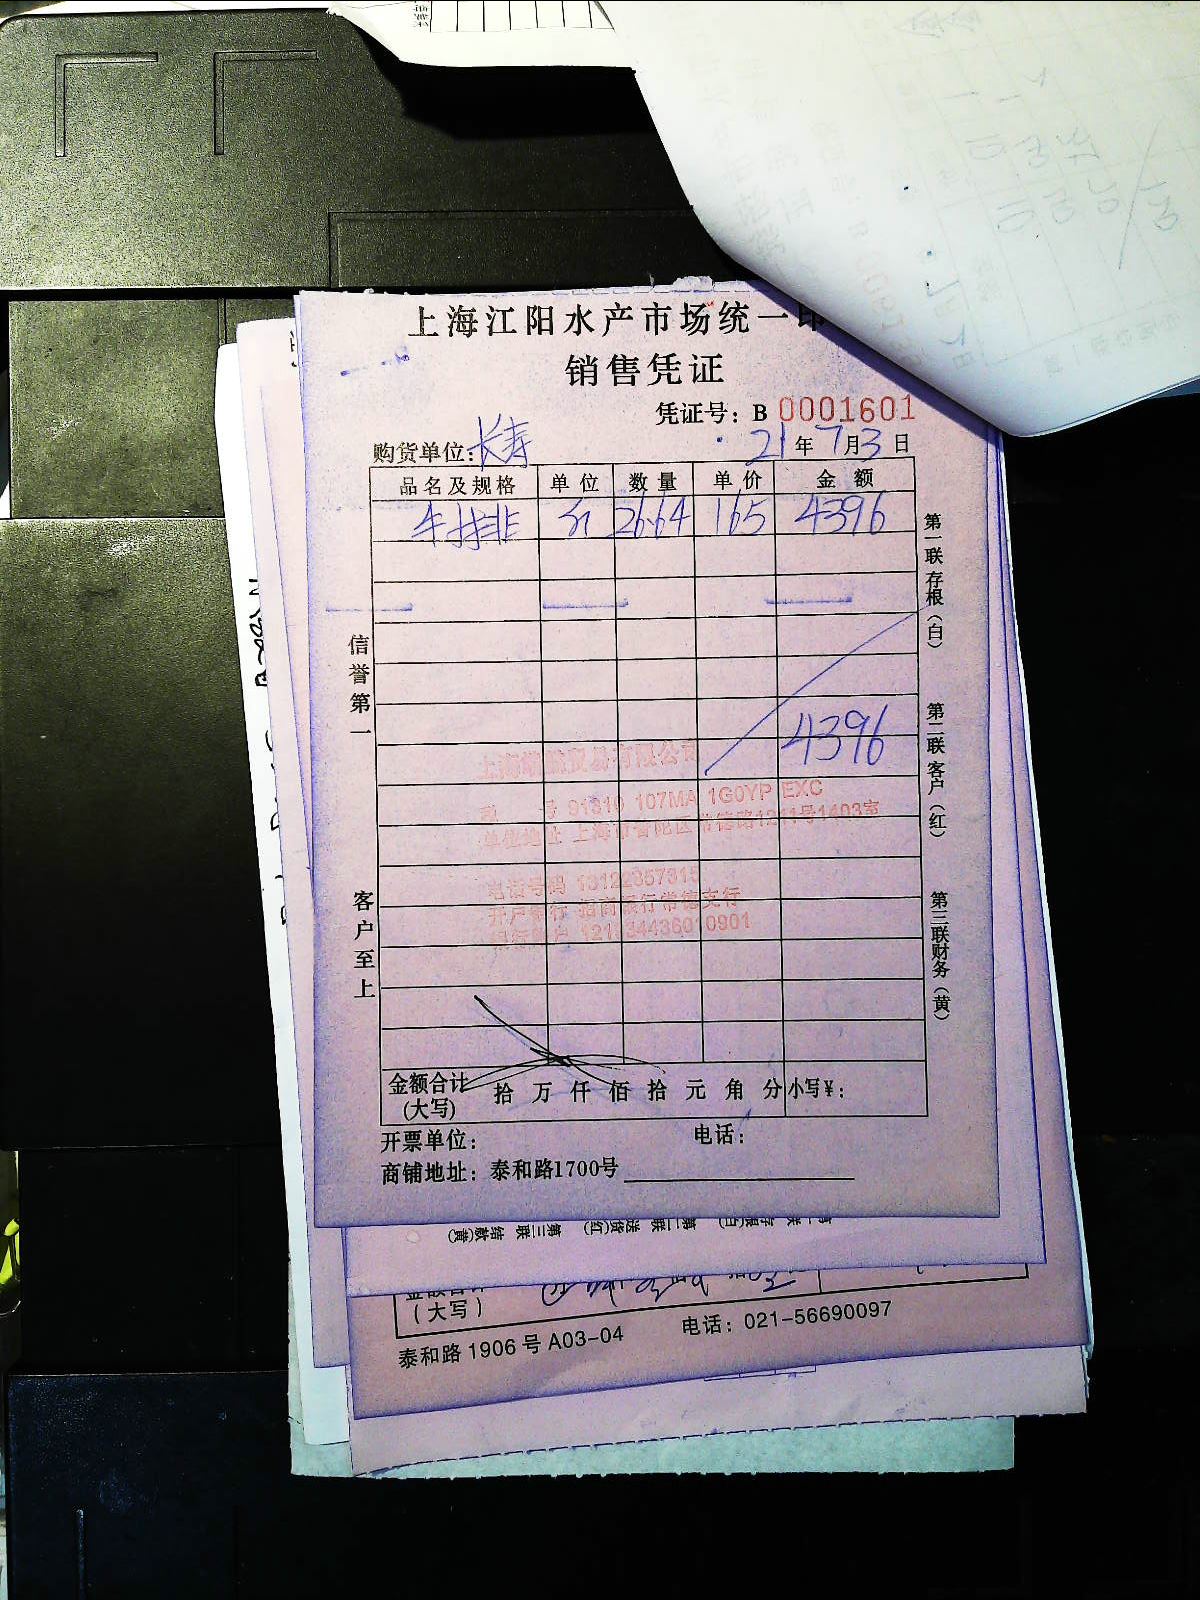 上海江阳水产市场统一印
销售凭证
凭证号：B 0001601
购货单位：长寿 21年7月3日
品名及规格 单位 数量 单价 金额
牛排 斤 26.64 165 4396
4396
信誉第一
客户至上
第一联存根（白）
第二联客户（红）
第三联财务（黄）
贸易有限公司
号 91310 107MA 1G0YP EXC
单位地址 上海市普陀区常德路1211号1403室
电话号码 13122357315
开户银行 招商银行常德支行
金额合计（大写） 拾 万 仟 佰 拾 元 角 分 小写¥：
开票单位： 电话：
商铺地址：泰和路1700号
第一联 存根(白) 第二联 送货(红) 第三联 结款(黄)
（大写）
泰和路1906号A03-04 电话：021-56690097